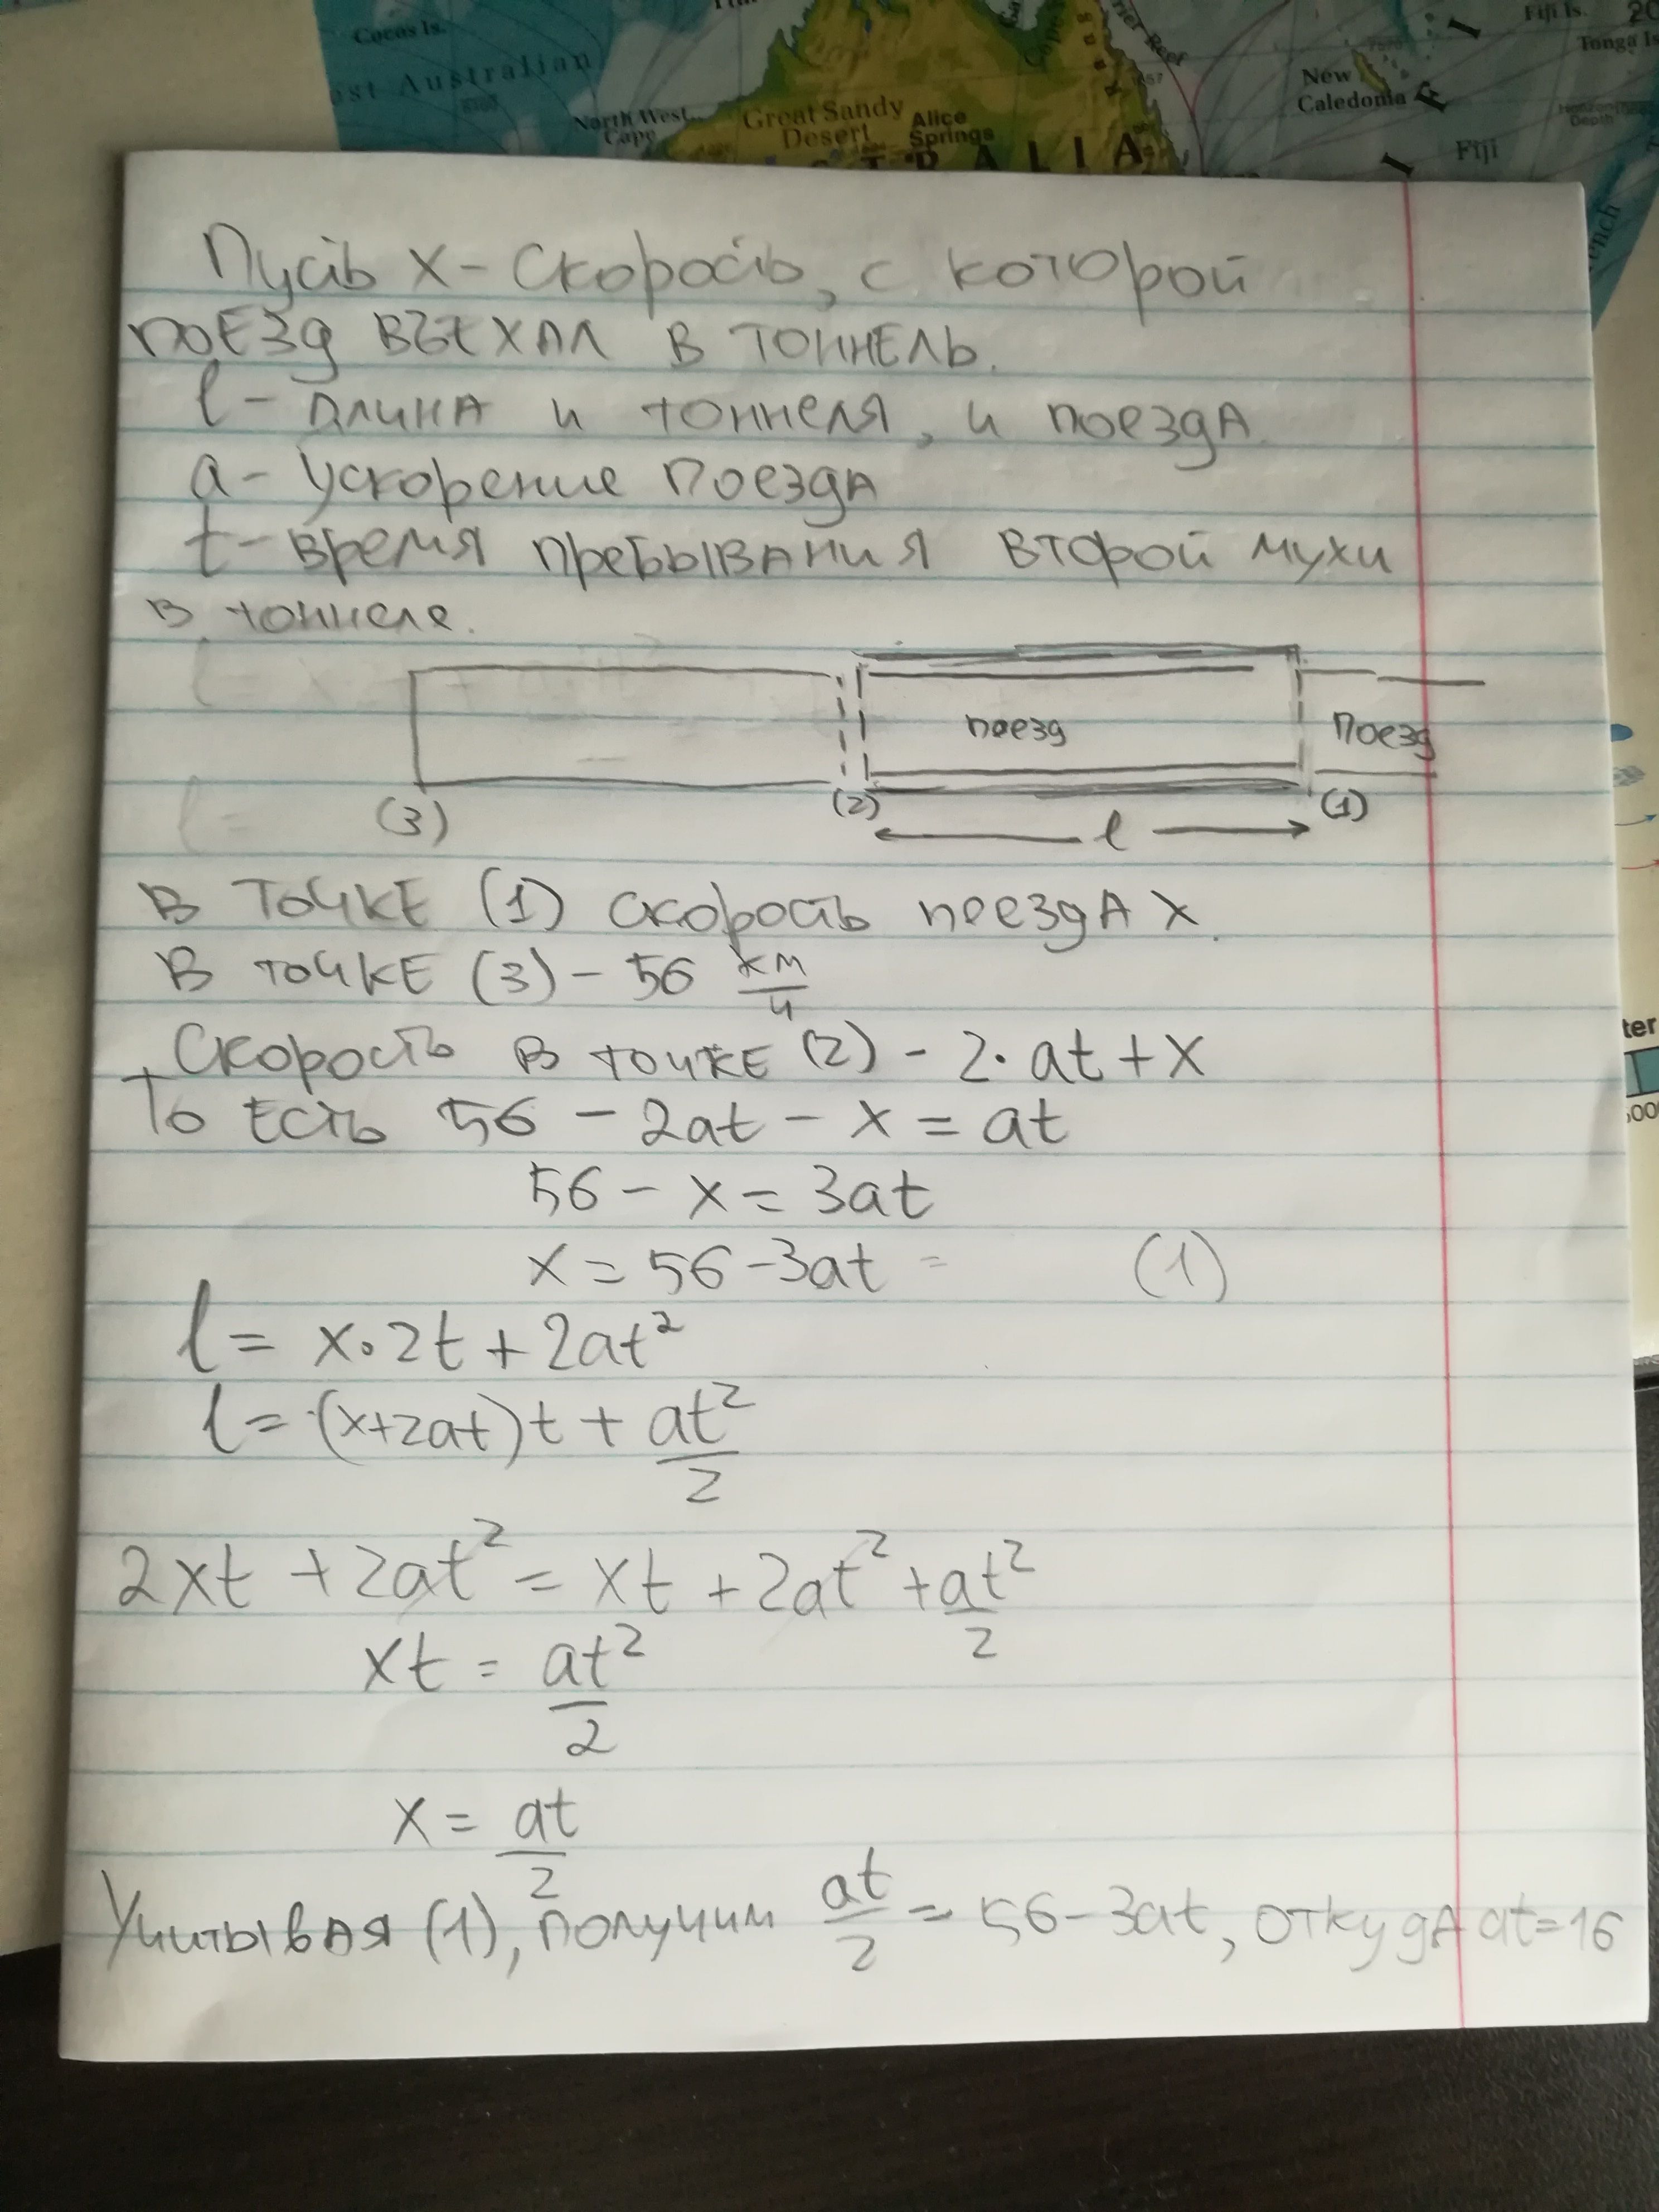 Cocos Is.
Fiji Is.
Tonga Is
ost Australian
North West
Cape
Great Sandy
Desert
Alice
Springs
New
Caledonia
Fiji
RALIA
Пусть x - скорость, с которой
поезд въехал в тоннель.
l - длина и тоннеля, и поезда.
a - ускорение поезда
t - время пребывания второй мухи
в тоннеле.
поезд Поезд
(3) (2) l (1)
В точке (1) скорость поезда x.
В точке (3) - 56 км/ч
Скорость в точке (2) - 2·at + x
То есть 56 - 2at - x = at
56 - x = 3at
x = 56 - 3at = (1)
l = x·2t + 2at²
l = (x+2at)t + at²/2
2xt + 2at² = xt + 2at² + at²/2
xt = at²/2
x = at/2
Учитывая (1), получим at/2 = 56 - 3at, откуда at = 16